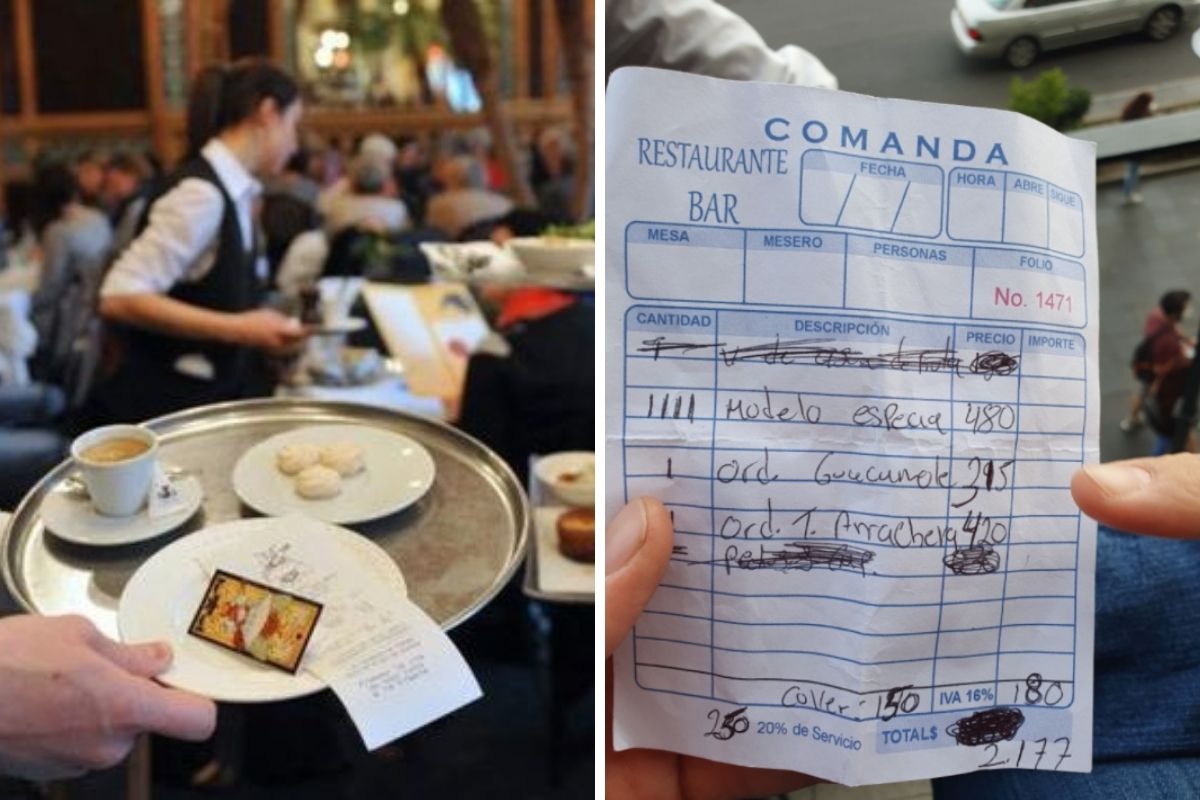 COMANDA
RESTAURANTE
BAR
FECHA
HORA ABRE SIGUE
MESA MESERO PERSONAS FOLIO
No. 1471
CANTIDAD DESCRIPCIÓN PRECIO IMPORTE
IIII Modelo especia 480
1 Ord. Guacamole 395
1 Ord. T. Arrachera 420
Cover: 150 IVA 16% 180
250 20% de Servicio TOTAL$
2.177